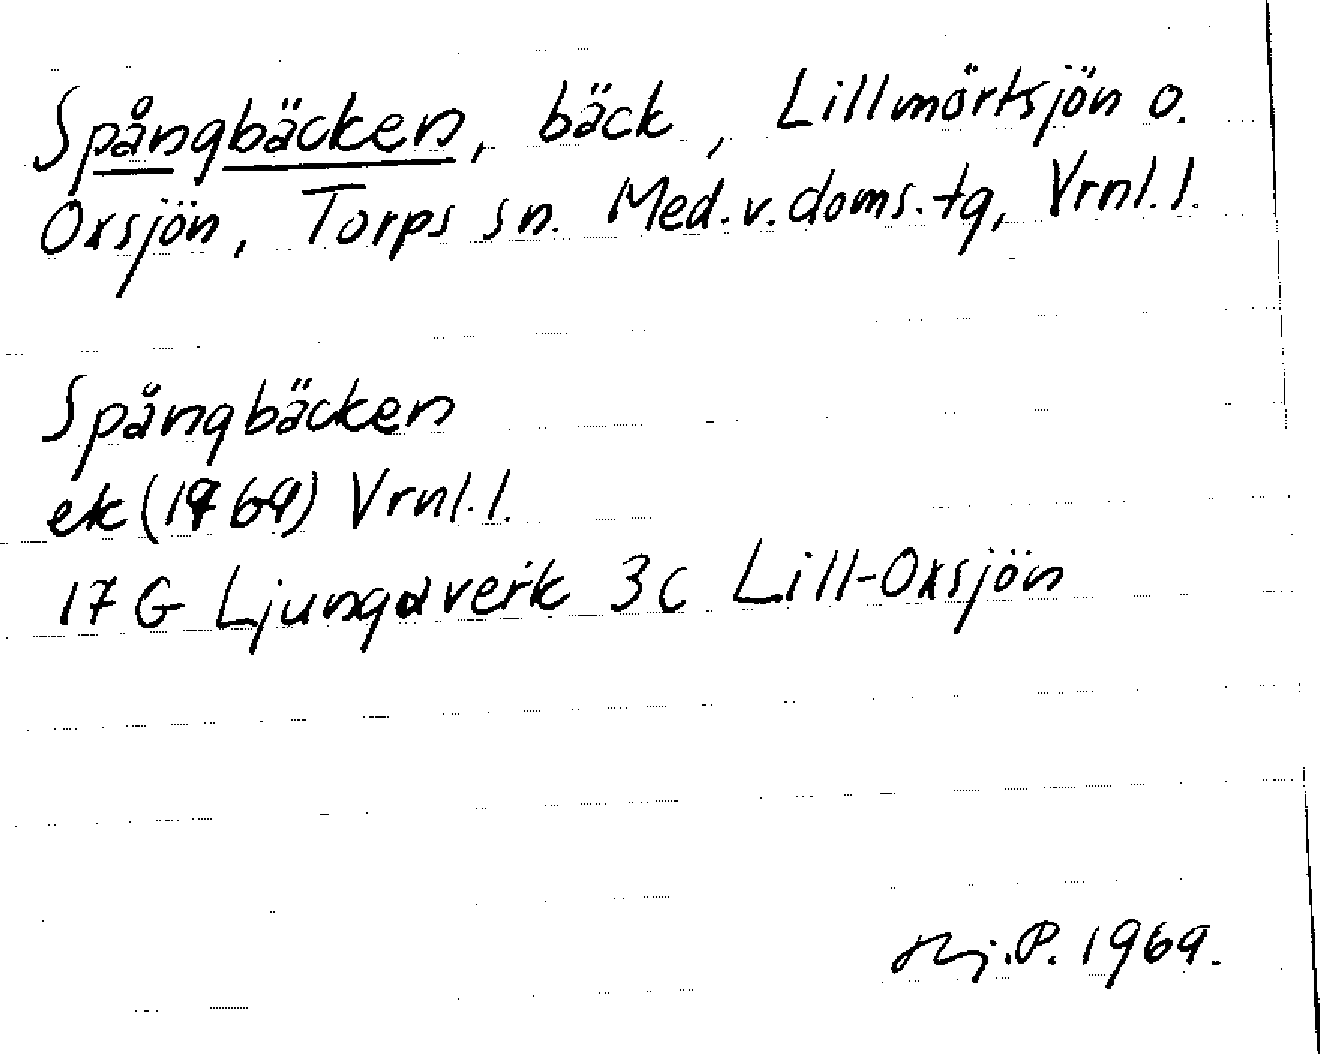 Spångbäcken, bäck, Lillmörtsjön o.
Oxsjön, Torps sn. Med.v.doms.tg, Vrnl.l.
Spångbäcken
ek (1969) Vrnl.l.
17 G Ljungaverk 3c Lill-Oxsjön
Hj.P. 1969.